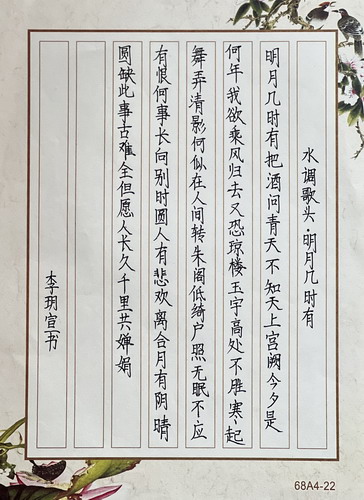 水调歌头·明月几时有
明月几时有把酒问青天不知天上宫阙今夕是
何年我欲乘风归去又恐琼楼玉宇高处不胜寒起
舞弄清影何似在人间转朱阁低绮户照无眠不应
有恨何事长向别时圆人有悲欢离合月有阴晴
圆缺此事古难全但愿人长久千里共婵娟
李玥宣书
68A4-22